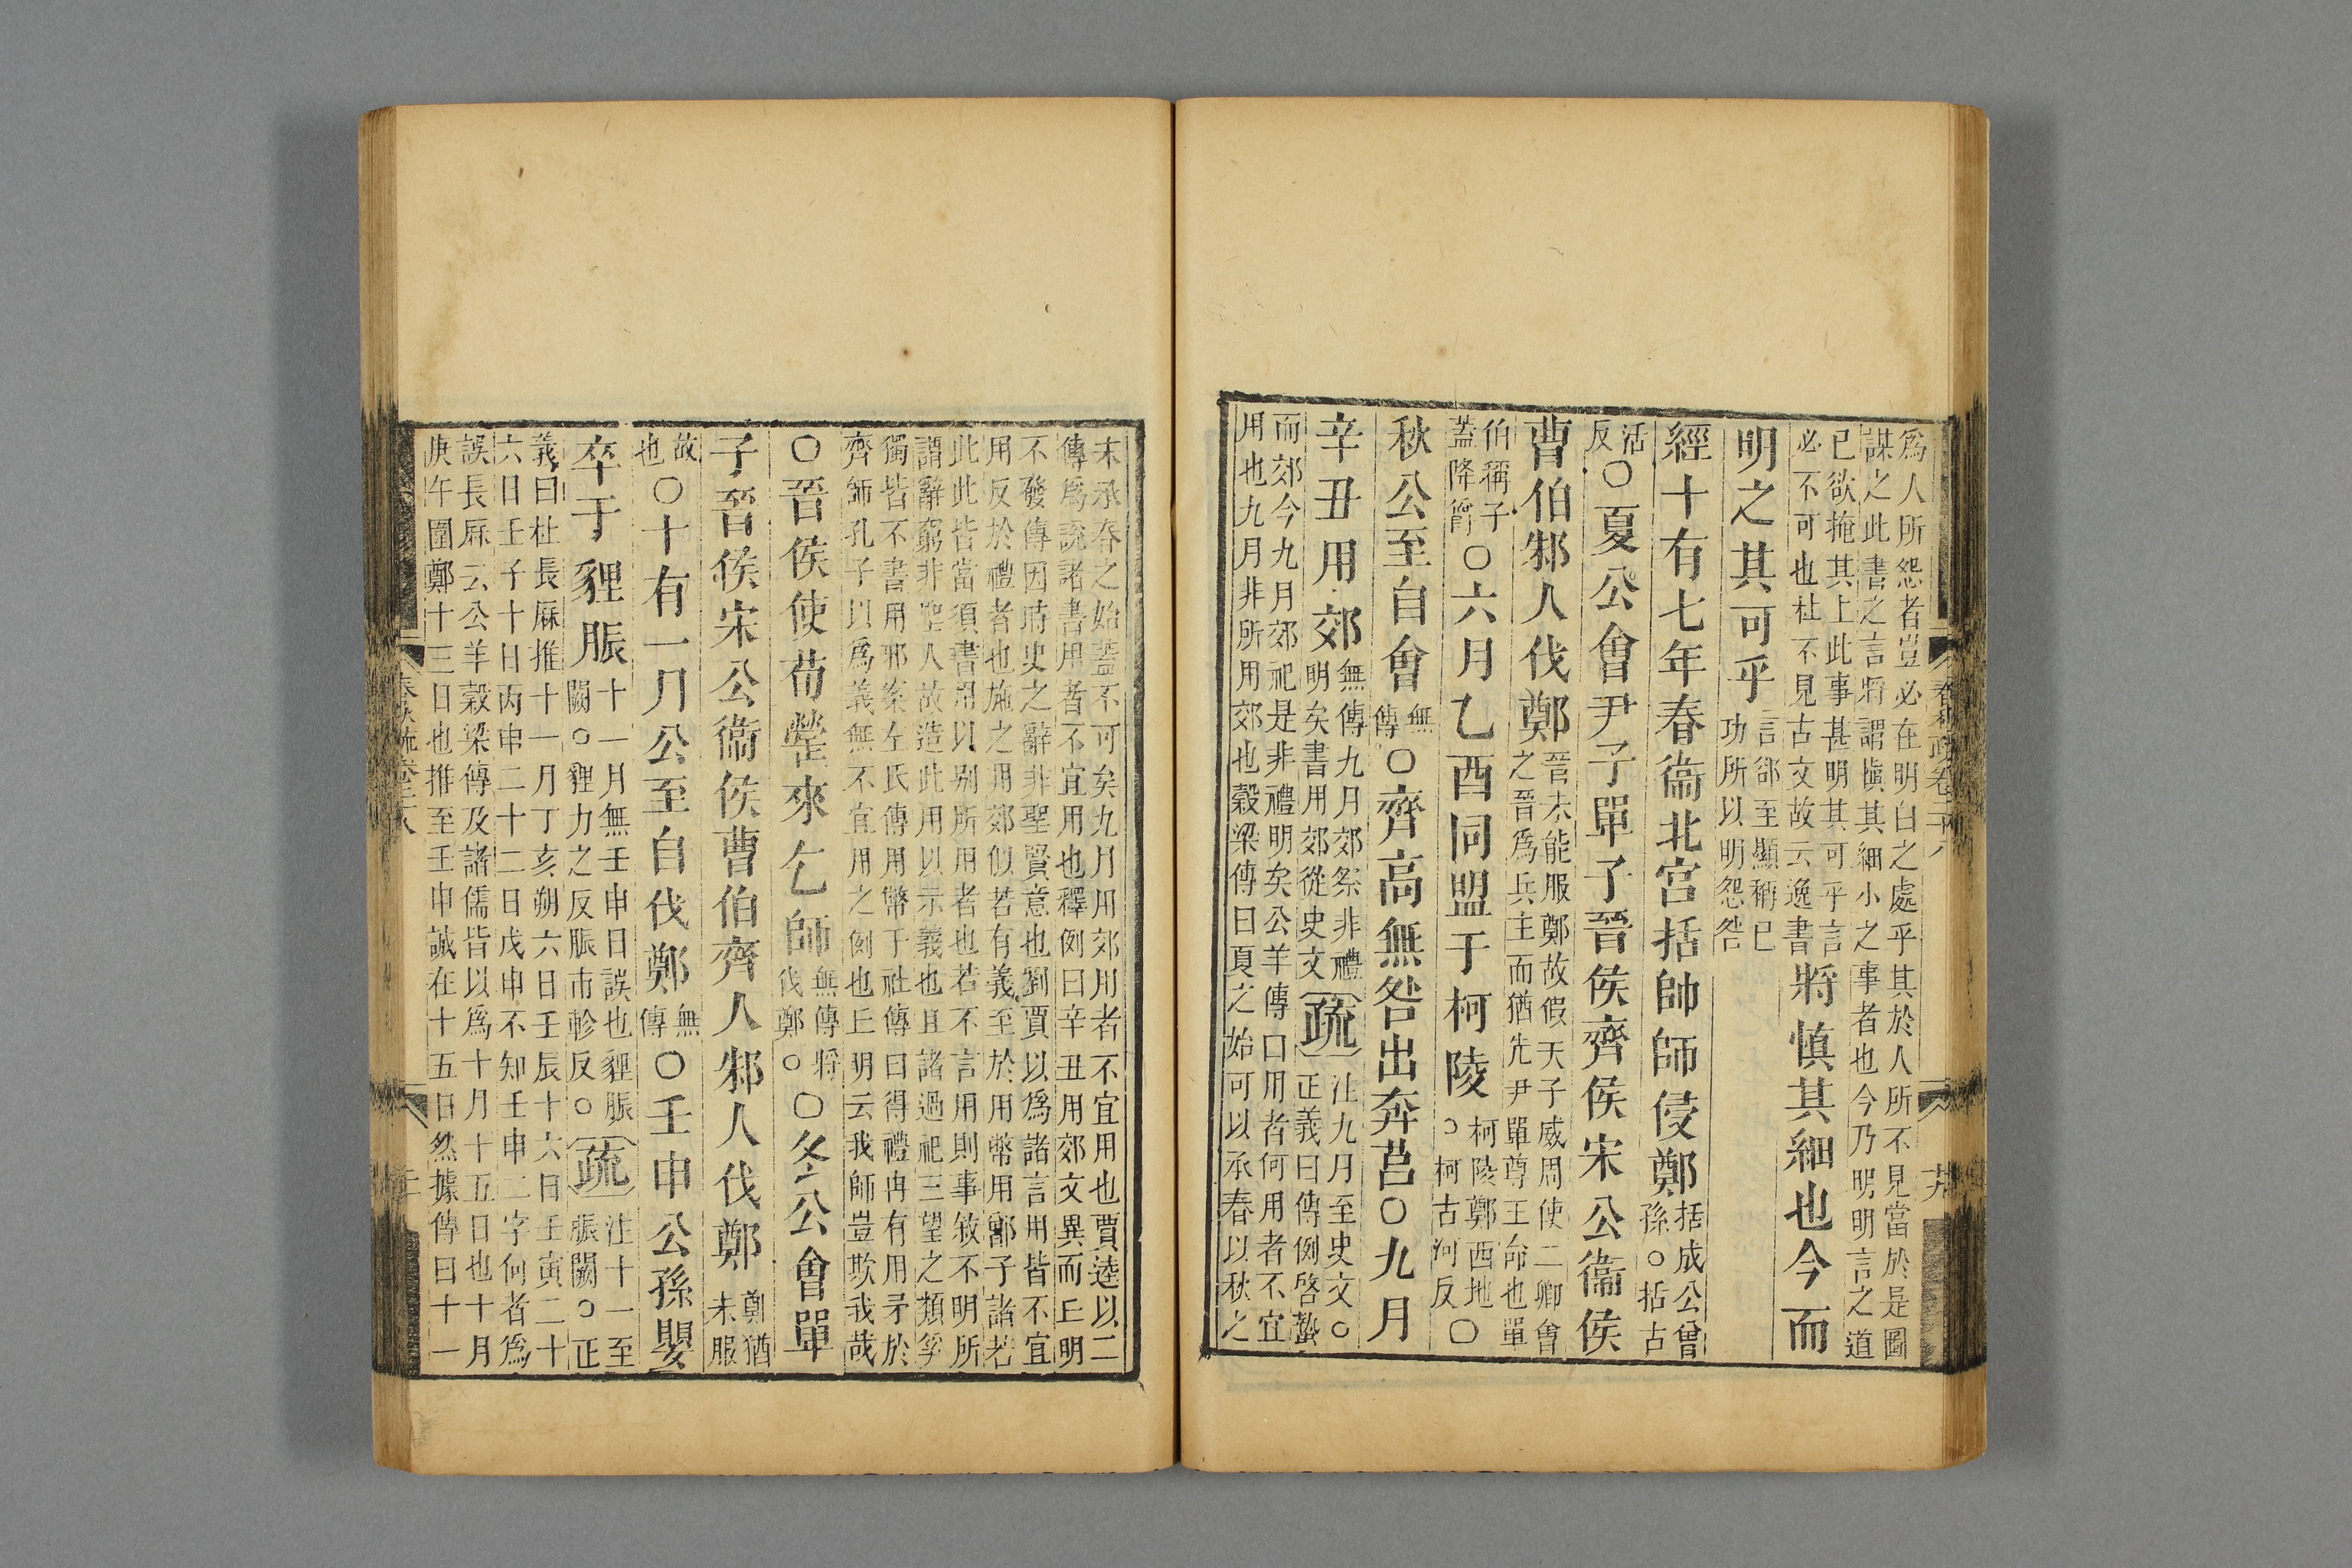 爲人所怨者豈必在明白之處乎其於人所不見當於是圖
謀之此書之言將謂愼其細小之事者也今乃明明言之道
已欲掩其上此事甚明其可乎言將慎其細也今而
必不可也杜不見古文故云逸書
明之其可乎言郤至顯稱已
功所以明怨咎
經十有七年春衞北宮括帥師侵鄭括成公曾
孫○括古
活
反○夏公會尹子單子晉侯齊侯宋公衞侯
曹伯邾人伐鄭晉未能服鄭故假天子威周使二卿會
之晉爲兵主而猶先尹單尊王命也單
伯稱子
蓋降爵○六月乙酉同盟于柯陵柯陵鄭西地○
○柯古河反
秋公至自會無
傳○齊高無咎出奔莒○九月
辛丑用郊無傳九月郊祭非禮
明矣書用郊從史文疏注九月至史文○
正義曰傳例啓蟄
而郊今九月郊祀是非禮明矣公羊傳曰用者何用者不宜
用也九月非所用郊也穀梁傳曰夏之始可以承春以秋之
末承春之始蓋不可矣九月用郊用者不宜用也賈逵以二
傳爲說諸書用者不宜用也釋例曰辛丑用郊文異而丘明
不發傳因時史之辭非聖賢意也劉賈以爲諸言用皆不宜
用反於禮者也施之用郊似若有義至於用幣用鄫子諸若
此此皆當須書用以別所用者也若不言用則事敘不明所
謂辭窮非聖人故造此用以示義也且諸過祀三望之類奚
獨皆不書用邪案左氏傳用幣于社傳曰得禮冉有用矛於
齊師孔子以爲義無不宜用之例也丘明云我師豈欺我哉
○晉侯使荀罃來乞師無傳將
伐鄭○○冬公會單
子晉侯宋公衞侯曹伯齊人邾人伐鄭鄭猶
未服
故
也○十有一月公至自伐鄭無
傳○壬申公孫嬰
卒于貍脤十一月無壬申日誤也貍脤
闕○貍力之反脤市軫反○疏注十一至
脤闕○正
義曰杜長厤推十一月丁亥朔六日壬辰十六日壬寅二十
六日壬子十日丙申二十二日戊申不知壬申二字何者爲
誤長厤云公羊穀梁傳及諸儒皆以爲十月十五日也十月
庚午圍鄭十三日也推至壬申誠在十五日然據傳曰十一